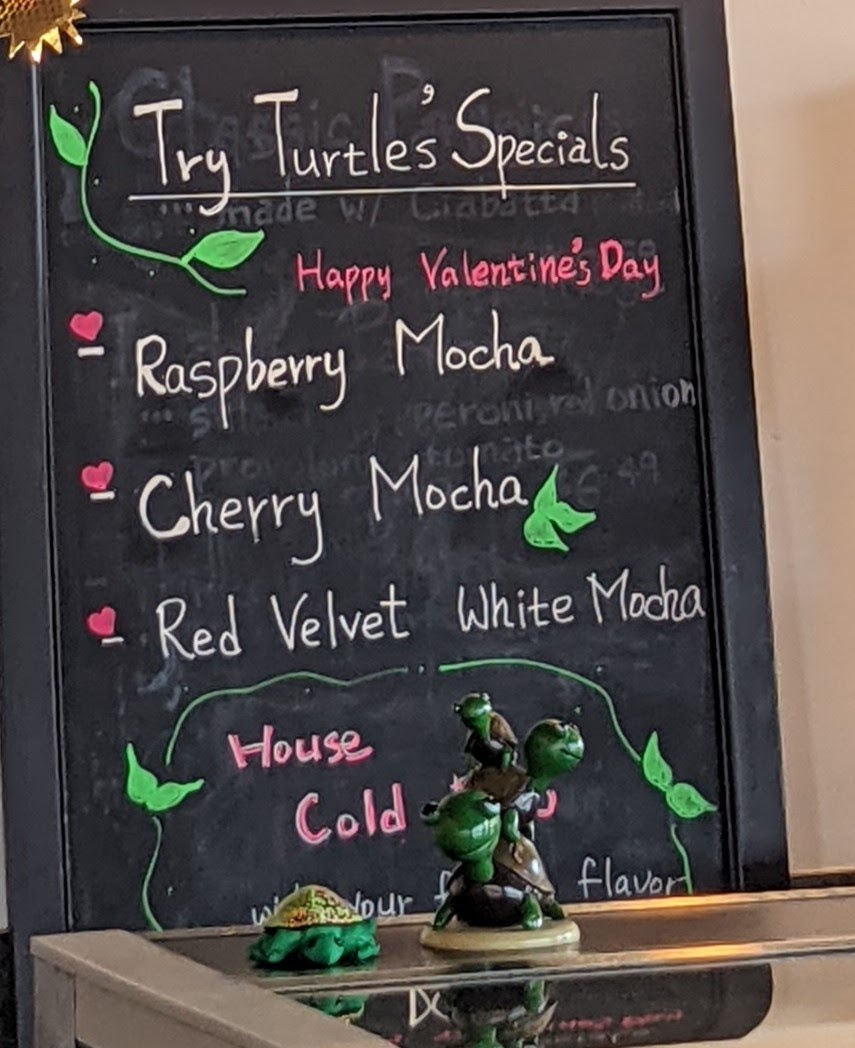 Try Turtle's Specials
Happy Valentine's Day
- Raspberry Mocha
- Cherry Mocha
- Red Velvet White Mocha
House
Cold
your flavor